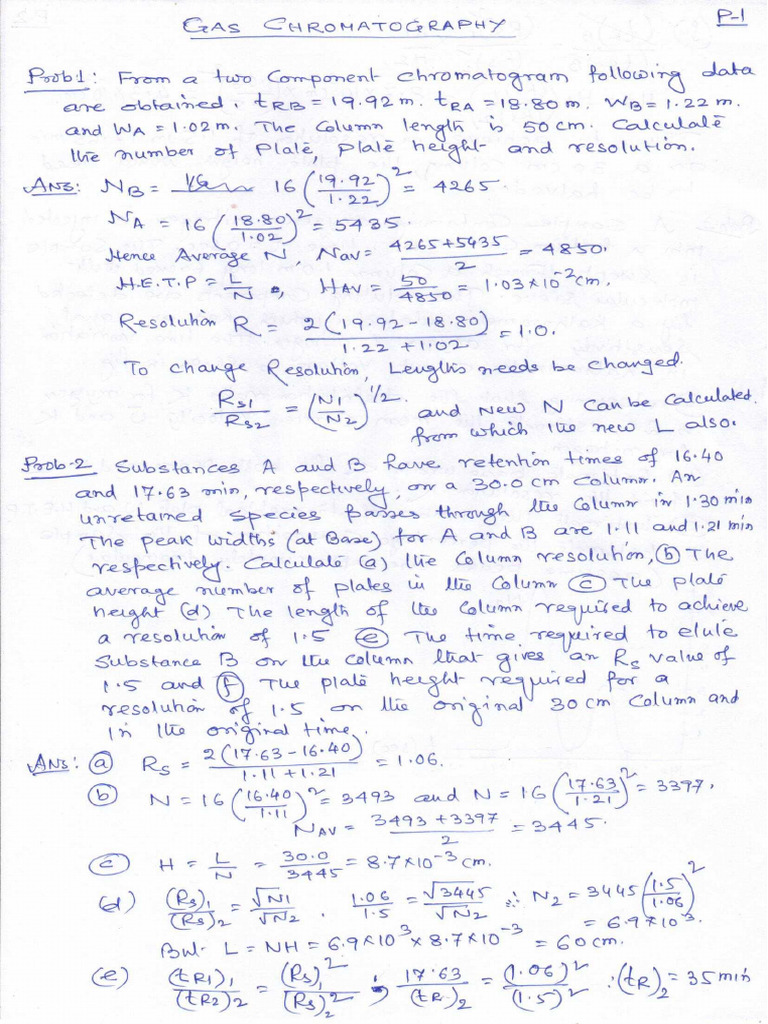 GAS CHROMATOGRAPHY
P-1
Prob1: From a two Component chromatogram following data
are obtained. tRB = 19.92 m. tRA = 18.80 m. WB = 1.22 m.
and WA = 1.02 m. The Column length is 50 cm. Calculate
the number of Plate, Plate height and resolution.
Ans: NB = 16 (19.92/1.22)² = 4265
NA = 16 (18.80/1.02)² = 5435.
Hence Average N, Nav = (4265+5435)/2 = 4850.
H.E.T.P = L/N, HAV = 50/4850 = 1.03×10⁻² cm.
Resolution R = 2(19.92-18.80)/(1.22+1.02) = 1.0.
To change Resolution, Lengths needs be changed.
Rs1/Rs2 = (N1/N2)^1/2. and New N Can be Calculated
from which the new L also.
Prob-2 Substances A and B have retention times of 16.40
and 17.63 min, respectively, on a 30.0 cm column. An
unretained species passes through the Column in 1.30 min
The peak widths (at Base) for A and B are 1.11 and 1.21 min
respectively. Calculate (a) the Column resolution, (b) The
average number of plates in the Column (c) The plate
height (d) The length of the Column required to achieve
a resolution of 1.5 (e) The time required to elute
Substance B on the column that gives an Rs value of
1.5 and (f) The plate height required for a
resolution of 1.5 on the original 30 cm Column and
in the original time.
Ans: (a) Rs = 2(17.63-16.40)/(1.11+1.21) = 1.06.
(b) N = 16 (16.40/1.11)² = 3493 and N = 16 (17.63/1.21)² = 3397.
NAV = (3493+3397)/2 = 3445.
(c) H = L/N = 30.0/3445 = 8.7×10⁻³ cm.
(d) (Rs)1/(Rs)2 = √N1/√N2. 1.06/1.5 = √3445/√N2 ∴ N2 = 3445 (1.5/1.06)²
= 6.9×10³.
But L = NH = 6.9×10³ × 8.7×10⁻³ = 60 cm.
(e) (tR1)1/(tR2)2 = (Rs)1²/(Rs)2² ; 17.63/(tR)2 = (1.06)²/(1.5)² ∴ (tR)2 = 35 min